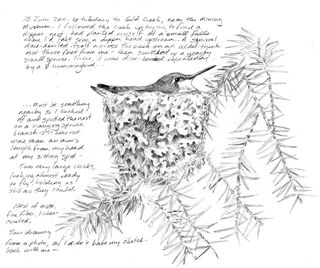 25 June 2011, up tributary to Gold Creek, near the Mining
Museum. I followed the creek up trying to find a
dipper nest; had planted myself at a small falls
where I'd last seen a dipper head upstream. A squirrel
dare-deviled itself across the creek on an alder trunk
not three feet from me - then scuttled up a nearby
small spruce. There, it was dive-bombed repeatedly
by a hummingbird...
...Must be something
nearby so I looked
off and spotted the nest
on a hanging spruce
branch - it was not
more than an arm's
length from my head
at my sitting spot.
Two very large chicks,
looking almost ready
to fly, holding as
still as they could.
Nest of moss,
fine fiber, lichen
coated.
This drawing
from a photo, as I didn't have my sketch-
book with me -